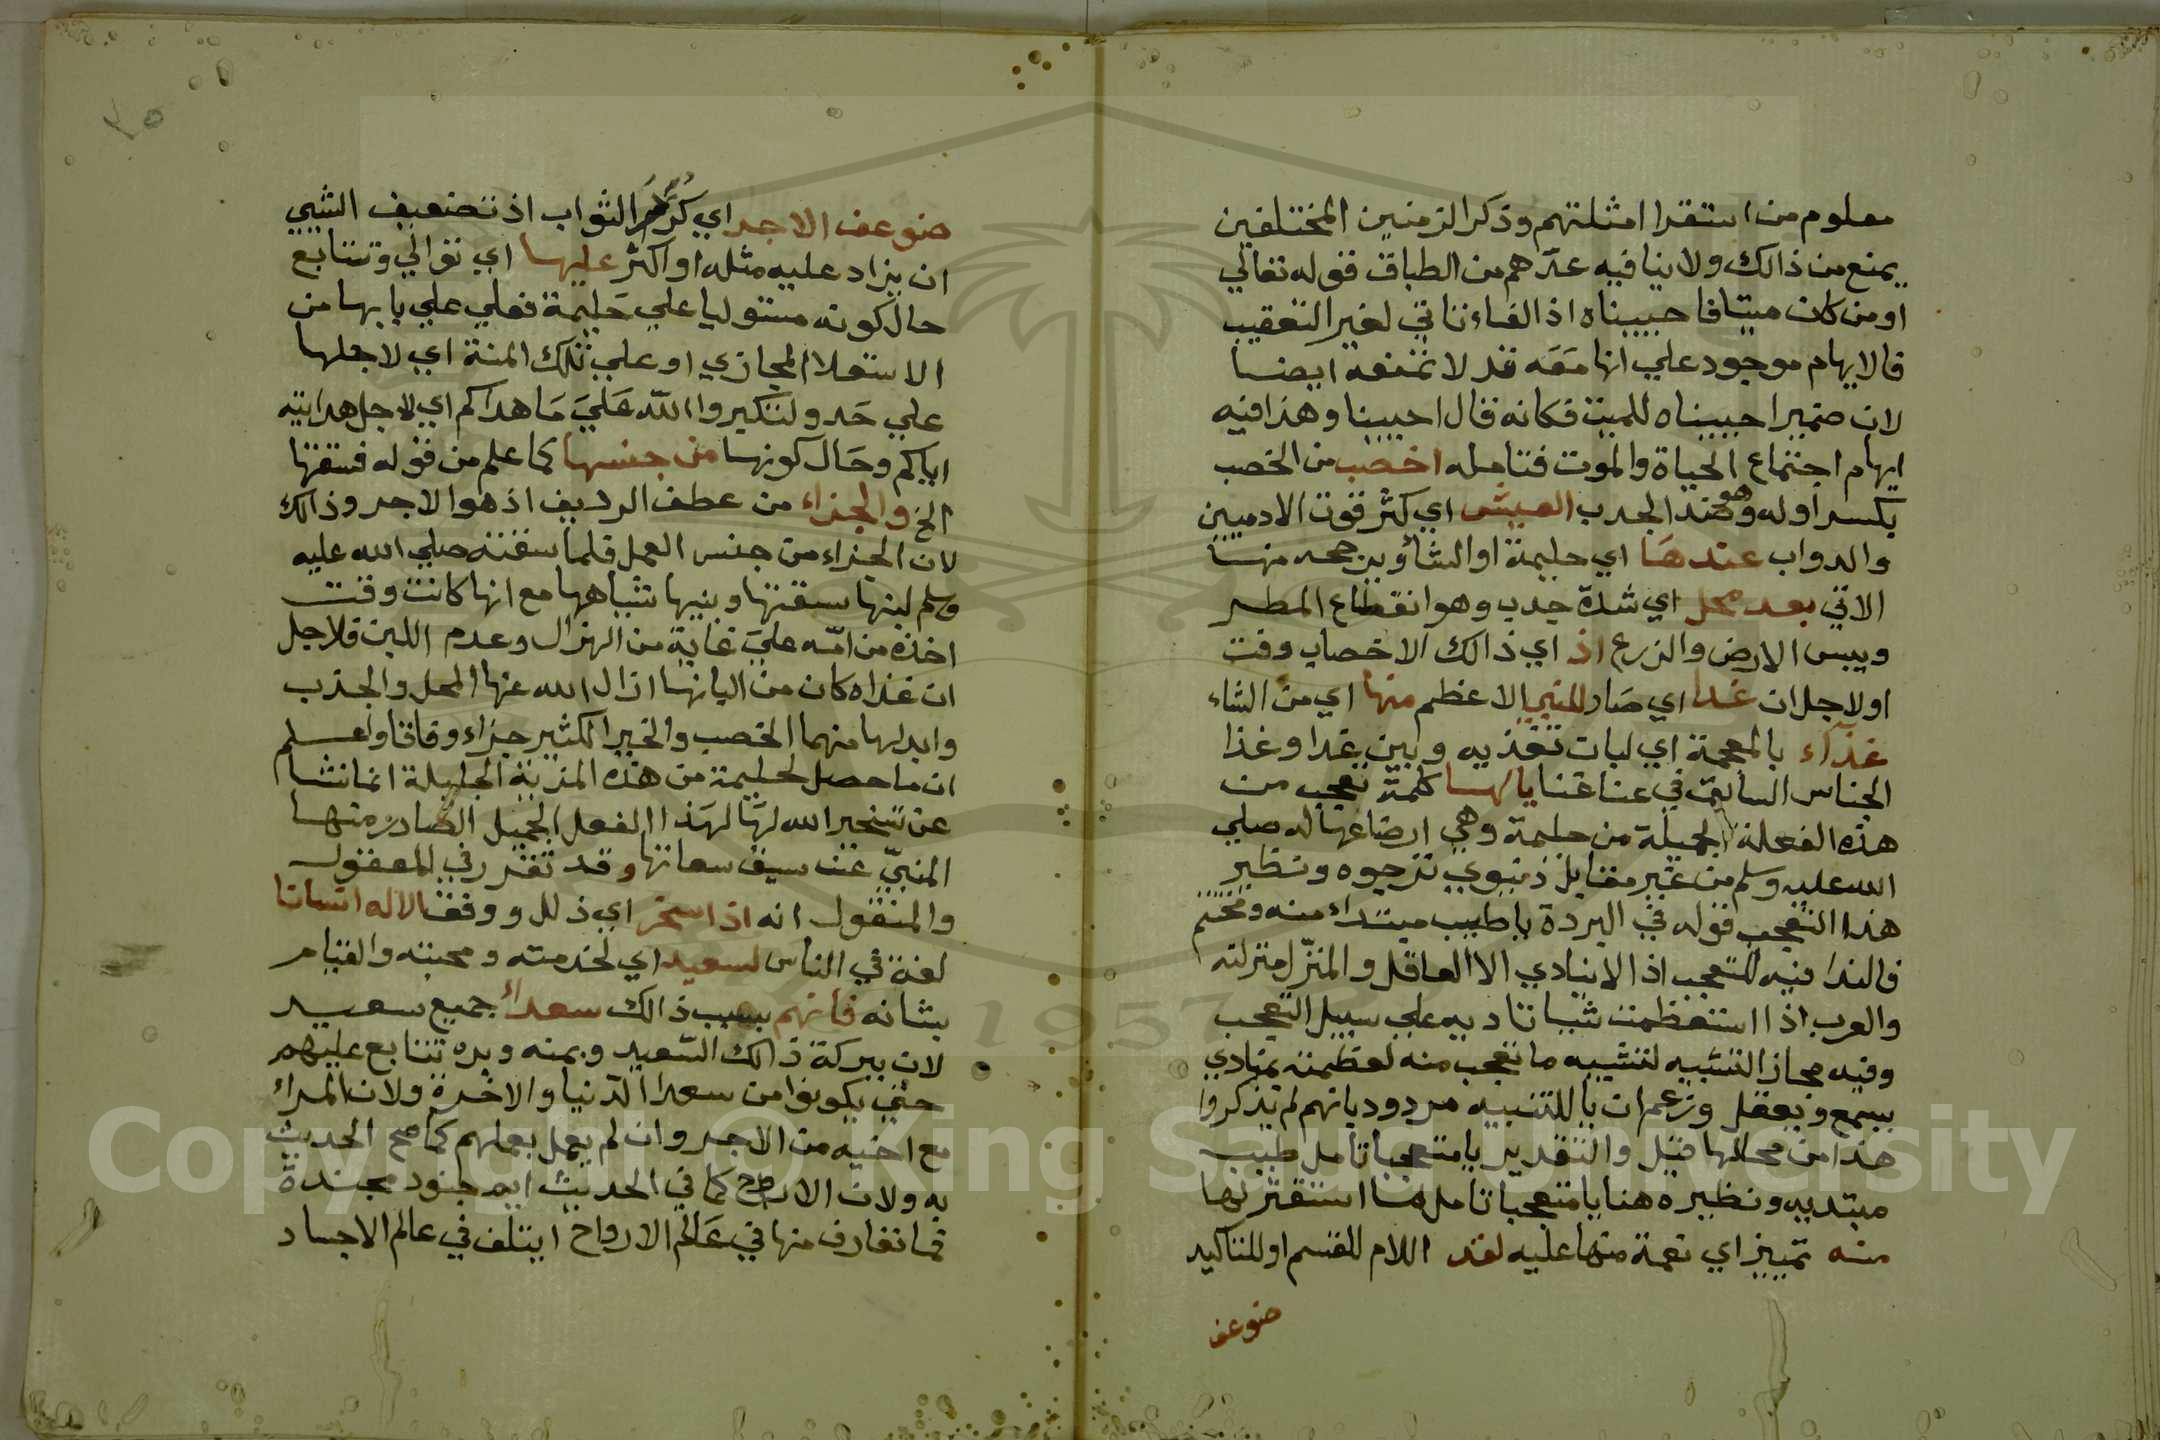 معلوم من استقرا امثلتهم وذكر الزمنين المختلفين
يمنع من ذالك ولا ينافيه عدّهم من الطباق قوله تعالي
او من كان ميتا فاحييناه اذ الفاء تاتي لغير التعقيب
فالايهام موجود علي انها مَعَه قد لا تمنعه ايضا
لان ضمير احييناه للميت فكانه قال احيينا وهذا فيه
ايهام اجتماع الحياة والموت فتامله اخصب من الخصب
بكسر اوله وهو ضد الجدب العيش اي كثر قوت الادميين
والدواب عندهَا اي حليمة او الشاؤ يرجحه منها
الاتي بعد محل اي شدة جدب وهو انقطاع المطر
ويبس الارض والزرع اذ اي ذالك الاخصاب وقت
او لاجل ان غدا اي صَار للنبي الاعظم منها اي من الشاء
غذآء بالمعجمة اي لبات تغذيه وبين غدا وغذا
الجناس السابق في عنا غنا يا لها كلمة تعجب من
هذه الفعلة الجميلة من حليمة وهي ارضاعها له صلي
الله عليه وسلم من غير مقابل دنيوي ترجوه ونظير
هذا التعجب قوله في البردة يا طيب مبتداء منه ومختتم
فالندا فيه للتعجب اذ لا ينادي الا العاقل والمنزّل منزلته
والعرب اذا استعظمت شيا نادبه علي سبيل التعجب
وفيه مجاز التشبيه لتشبيه ما تعجب منه لعظمته بمنادي
يسمع ويعقل وزعم ان يا للتنبيه مردود بانهم لم يذكروا
هذا من محالها قيل والتقدير يا متعجبا تامل طيب
مبتديه ونظيره هنا يا متعجبا تامل ما استقر لها
منه تمييز اي نعمة منها عليه لقد اللام للقسم او للتاكيد
ضوعف
ضوعف الاجر اي كَرَّر الثواب اذ تضعيف الشيي
ان يزاد عليه مثله او اكثر عليها اي توالي وتتابع
حال كونه مستوليا علي حَليمة فعلي علي بابها من
الاستعلا المجازي او علي تلك المنة اي لاجلها
علي حَد ولتكبروا اللّه عَليَ مَا هداكم اي لاجل هدايته
اياكم وحَال كونها من جنسها كما علم من قوله فسقتها
الخ والجزاء من عطف الرديف اذ هو الاجر وذالك
لان الجزاء من جنس العمل فلما سقته صلي الله عليه
وسلم لبنها سقتها وبنيها شياهها مع انها كانت وقت
اخذه من امّه عليَ غاية من الهزال وعدم اللبن فلاجل
ان غذاه كان من البانها ازال الله عنها المحل والجدب
وابدلها منهما الخصب والخير الكثير جزاء وفاقا واعلم
ان ما حصل لحليمة من هذه المزية الجليلة انما نشا
عن تسخير الله لهَا لهَذا الفعل الجميل الصادر منها
المنبيّ عن سبق سعادتها وقد تقرر في المعقول
والمنقول انه اذا سخر اي ذلل ووفق الاله اناسا
لغة في الناس لسعيد اي لخدمته ومحبته والقيام
بشانه فانهم بسبب ذالك سعداء جميع سعيد
لان ببركة ذالك السّعيد وبمنه وبره تتابع عليهم
حتي يكونوا من سعدا الدّنيا والاخرة ولان المراء
مع احبه من الاجر وان لم يعمل بعملهم كما صح الحديث
به ولان الارواح كما في الحديث ايم جنود مجندة
فما تعارف منها في عَالم الارواح ايتلف في عالم الاجساد